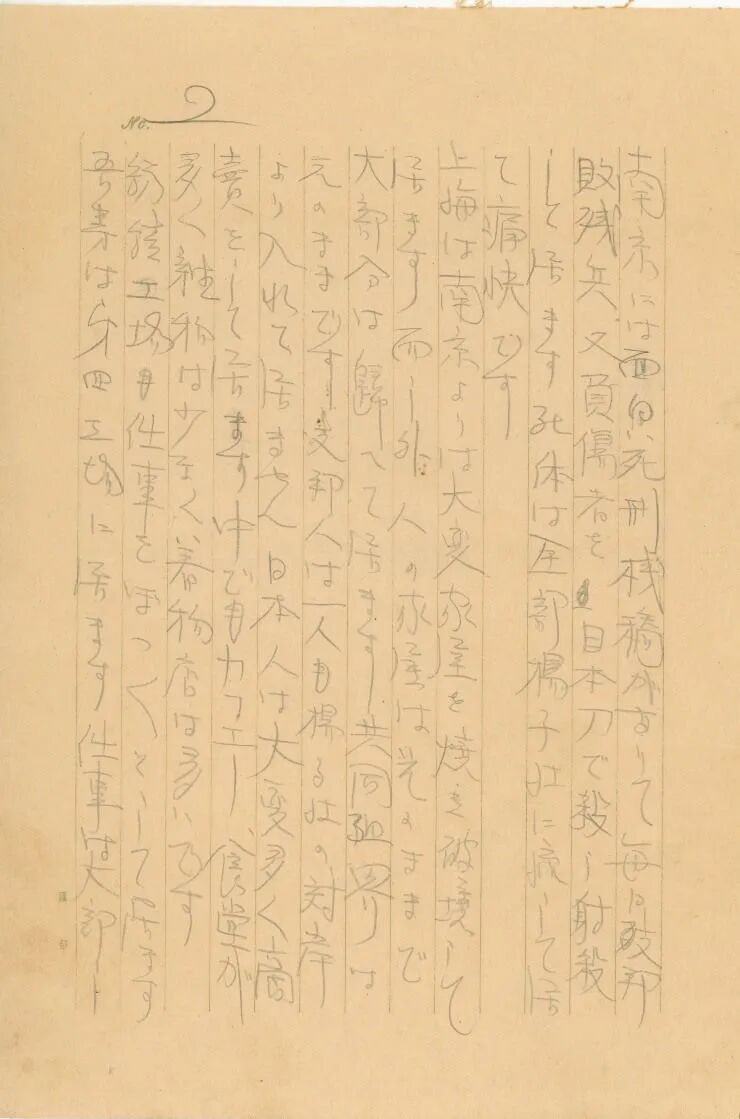 No. 2
南京には面白い死刑桟橋がありて毎日支那
敗残兵又負傷者を日本刀で殺し射殺
して居ます死体は全部揚子江に流して居
て痛快です
上海は南京よりは大変家屋を焼き破壊して
居ます而し外人の家屋は其のままで
大部分は帰へて居ます共同租界は
元のままです支那人は一人も揚子江の対岸
より入れて居ません日本人は大変多く商
賣をして居ます中でもカフエー食堂が
多く雑物は少なく着物店は多いです
紡績工場も仕事をぼつ〱として居ます
吾等は第四工場に居ます仕事は大部